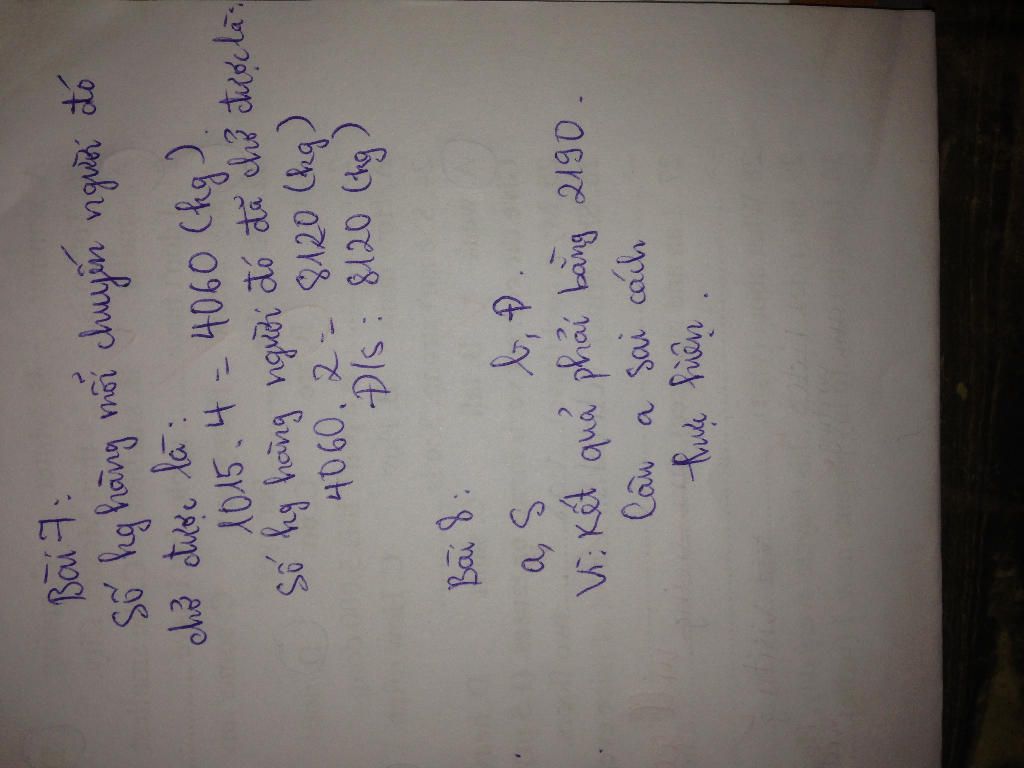 Bài 7:
Số kg hàng mỗi chuyến người đó
chở được là:
1015 . 4 = 4060 (kg)
Số kg hàng người đó đã chở được là:
4060 . 2 = 8120 (kg)
Đ/s: 8120 (kg)
Bài 8:
a, S b, Đ.
Vì: Kết quả phải bằng 2190.
Câu a sai cách
thực hiện.